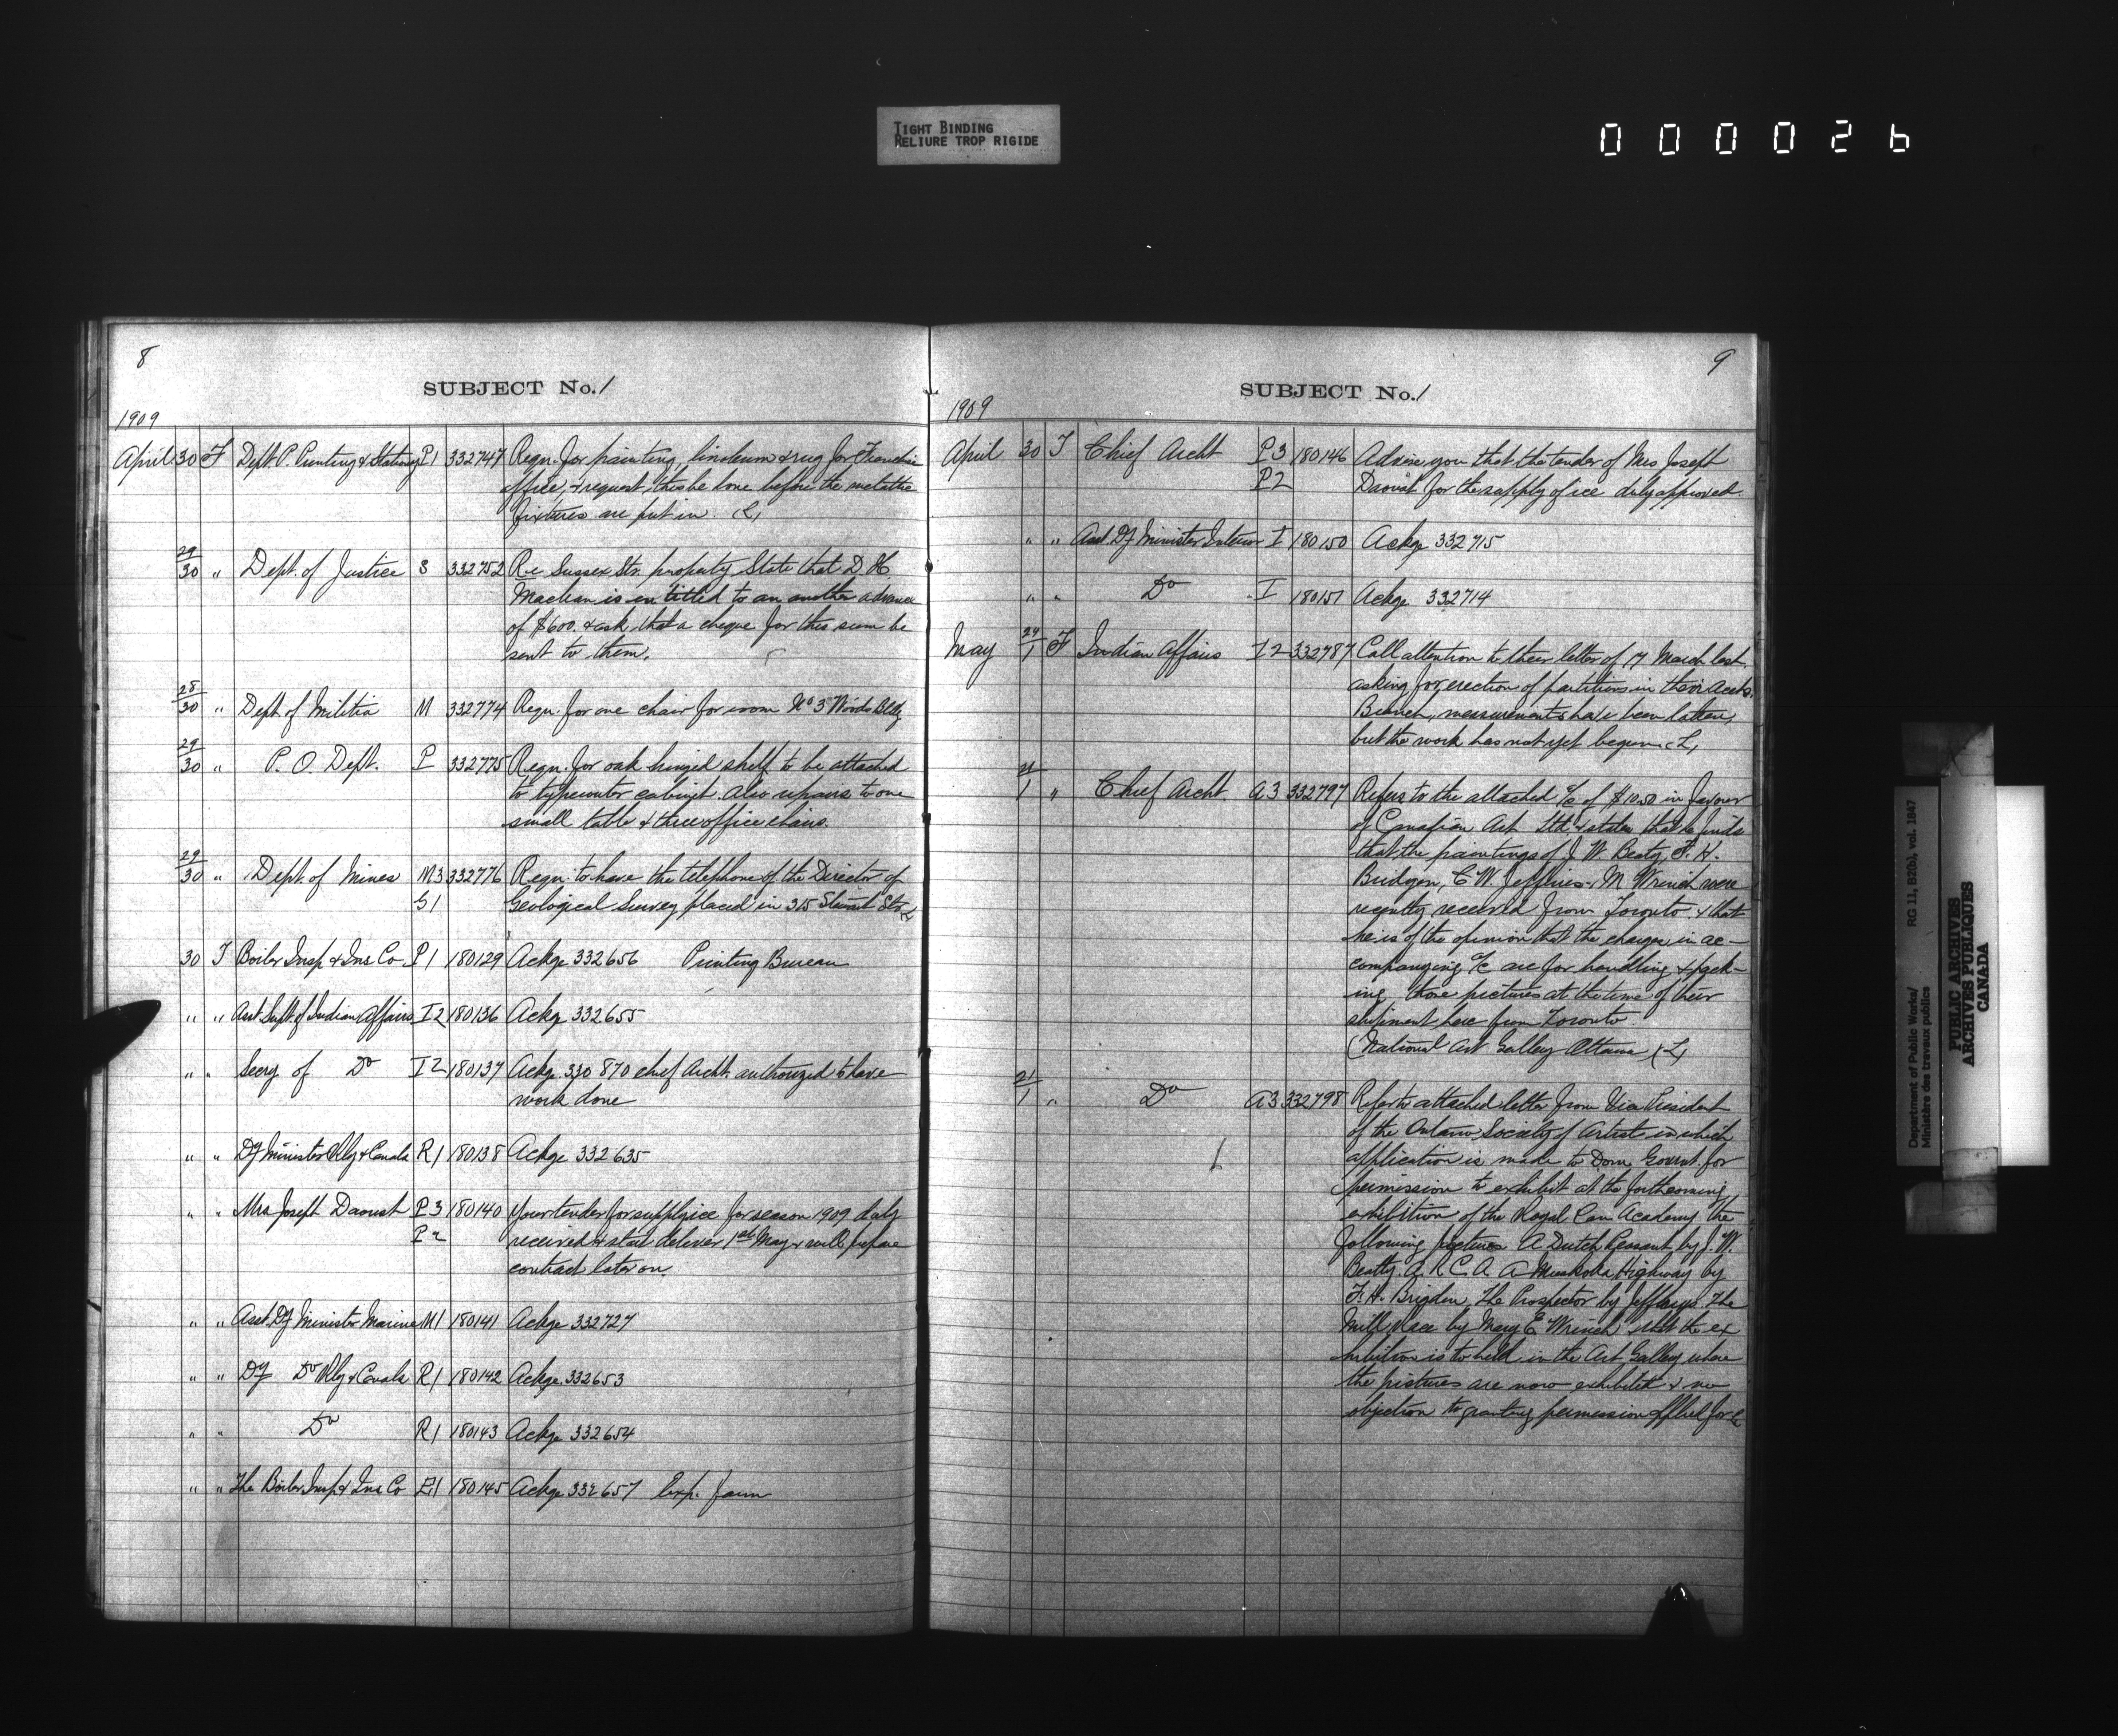 TIGHT BINDING
RELIURE TROP RIGIDE
000026
8
SUBJECT No. 1
1909
April 30 F Dept. P. Printing & Stationy P1 332747 Reqn. for painting, linoleum & rug for
office, & request this be done before the metallic
fixtures are put in. (L)
29/30 " Dept. of Justice S 332752 Re Sussex Str. property State that D. H.
Maclean is entitled to an another advance
of $600. & ask that a cheque for this sum be
sent to them.
28/30 " Dept. of Militia M 332774 Reqn. for one chair for room No 3 Woods Bldg
29/30 " P. O. Dept. P 332775 Reqn. for oak hinged shelf to be attached
to typewriter cabinet. also repairs to one
small table & three office chairs.
29/30 " Dept. of Mines M3 332776 Reqn. to have the telephone of the Director of
G1 Geological Survey placed in 315 Stewart Str
30 T Boiler Insp & Ins Co P1 180129 Ackge 332656 Printing Bureau
" " Asst. Supt. of Indian Affairs I2 180136 Ackg 332655
" " Secy of Do I2 180137 Ackg. 330870 chief Archt. authorized to have
work done
" " Dy Minister Rly & Canals R1 180138 Ackge 332635
" " Mrs Joseph Daoust P3 180140 Your tender for supply ice for season 1909 duly
P2 received & start deliver 1st May & will prepare
contract later on.
" " Asst. Dy Minister Marine M1 180141 Ackge 332727
" " Dy Do Rly & Canals R1 180142 Ackge. 332653
" " Do R1 180143 Ackge 332654
" " The Boiler Insp & Ins Co E1 180145 Ackge 332657 Exp. farm
9
SUBJECT No. 1
1909
April 30 T Chief Archt P3 180146 Advise you that the tender of Mrs Joseph
P2 Daoust for the supply of ice duly approved
" " Asst. Dy Minister Interior I 180150 Ackge 332715
" " Do I 180151 Ackge 332714
May 29/1 F Indian Affairs I2 332787 Call attention to their letter of 17 March last
asking for erection of partitions in their Accts.
Branch, measurements have been taken,
but the work has not yet begun. (L)
21/1 " Chief Archt. A3 332797 Refers to the attached a/c of $10.50 in favour
of Canadian Art Ltd. & states that he finds
that the paintings of J. W. Beaty, F. H.
Bridgen, C. W. Jeffries & M Wrinch were
recently received from Toronto & that
he is of the opinion that the charges in ac-
companying a/c are for handling & pack-
ing those pictures at the time of their
shipment here from Toronto
(National Art Galley Ottawa) (L)
21/1 " Do A3 332798 Refers to attached letter from Vice President
of the Ontario Society of Artist in which
application is made to Dom. Govmt. for
permission to exhibit at the forthcoming
exhibition of the Royal Can Academy the
following pictures A Dutch Peasant by J. W.
Beatty. A. R. C. A. A Muskoka Highway by
F. H. Brigden, The Prospector by Jefferys The
Mill Race by Mary E Wrinch. that the ex
hibition is to held in the Art Gallery where
the pictures are now exhibited & no
objection to granting permission applied for L
Department of Public Works/ RG 11, B2(b), vol. 1847
Ministère des travaux publics
PUBLIC ARCHIVES
ARCHIVES PUBLIQUES
CANADA